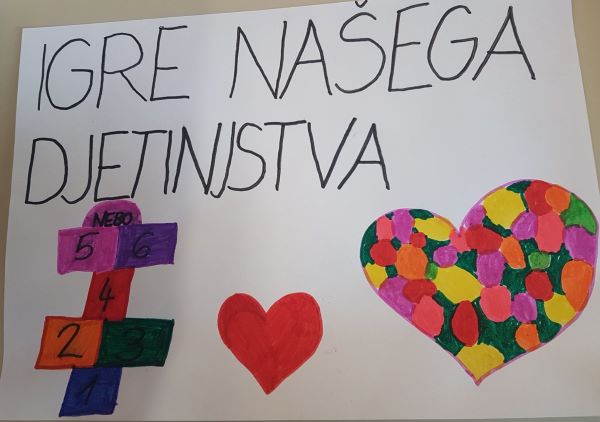 IGRE NAŠEGA
DJETINJSTVA
NEBO
5 6
4
2 3
1